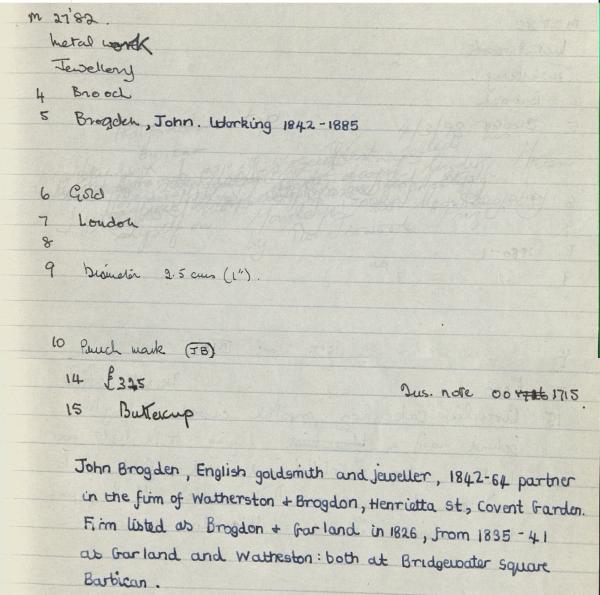 M 27'82.
Metal work
Jewellery
4 Brooch
5 Brogden, John. Working 1842-1885
6 Gold
7 London
8
9 Diameter 2.5 cms (1").
10 Punch mark (JB)
14 £325
Ins. note 00 1715
15 Buttercup
John Brogden, English goldsmith and jeweller, 1842-64 partner
in the firm of Watherston + Brogdon, Henrietta St, Covent Garden.
Firm listed as Brogdon + Garland in 1826, from 1835-41
as Garland and Watheston: both at Bridgewater Square
Barbican.